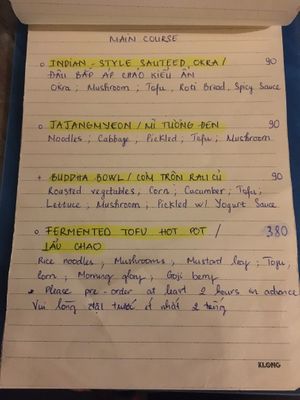 MAIN COURSE
o INDIAN-STYLE SAUTEED OKRA / 90
ĐẬU BẮP ÁP CHẢO KIỂU ẤN
Okra ; Mushroom ; Tofu, Roti Bread, Spicy Sauce
o JAJANGMYEON / MÌ TƯƠNG ĐEN 90
Noodles ; Cabbage, Pickled ; Tofu ; Mushroom
+ BUDDHA BOWL / CƠM TRỘN RAU CỦ 90
Roasted vegetables, Corn ; Cucumber ; Tofu ;
Lettuce ; Mushroom ; Pickled w/ Yogurt Sauce
o FERMENTED TOFU HOT POT / 380
LẨU CHAO
Rice noodles ; Mushrooms ; Mustard leaf ; Tofu ;
Corn ; Morning glory ; Goji berry
• Please pre-order at least 2 hours in advance
Vui lòng đặt trước ít nhất 2 tiếng
KLONG